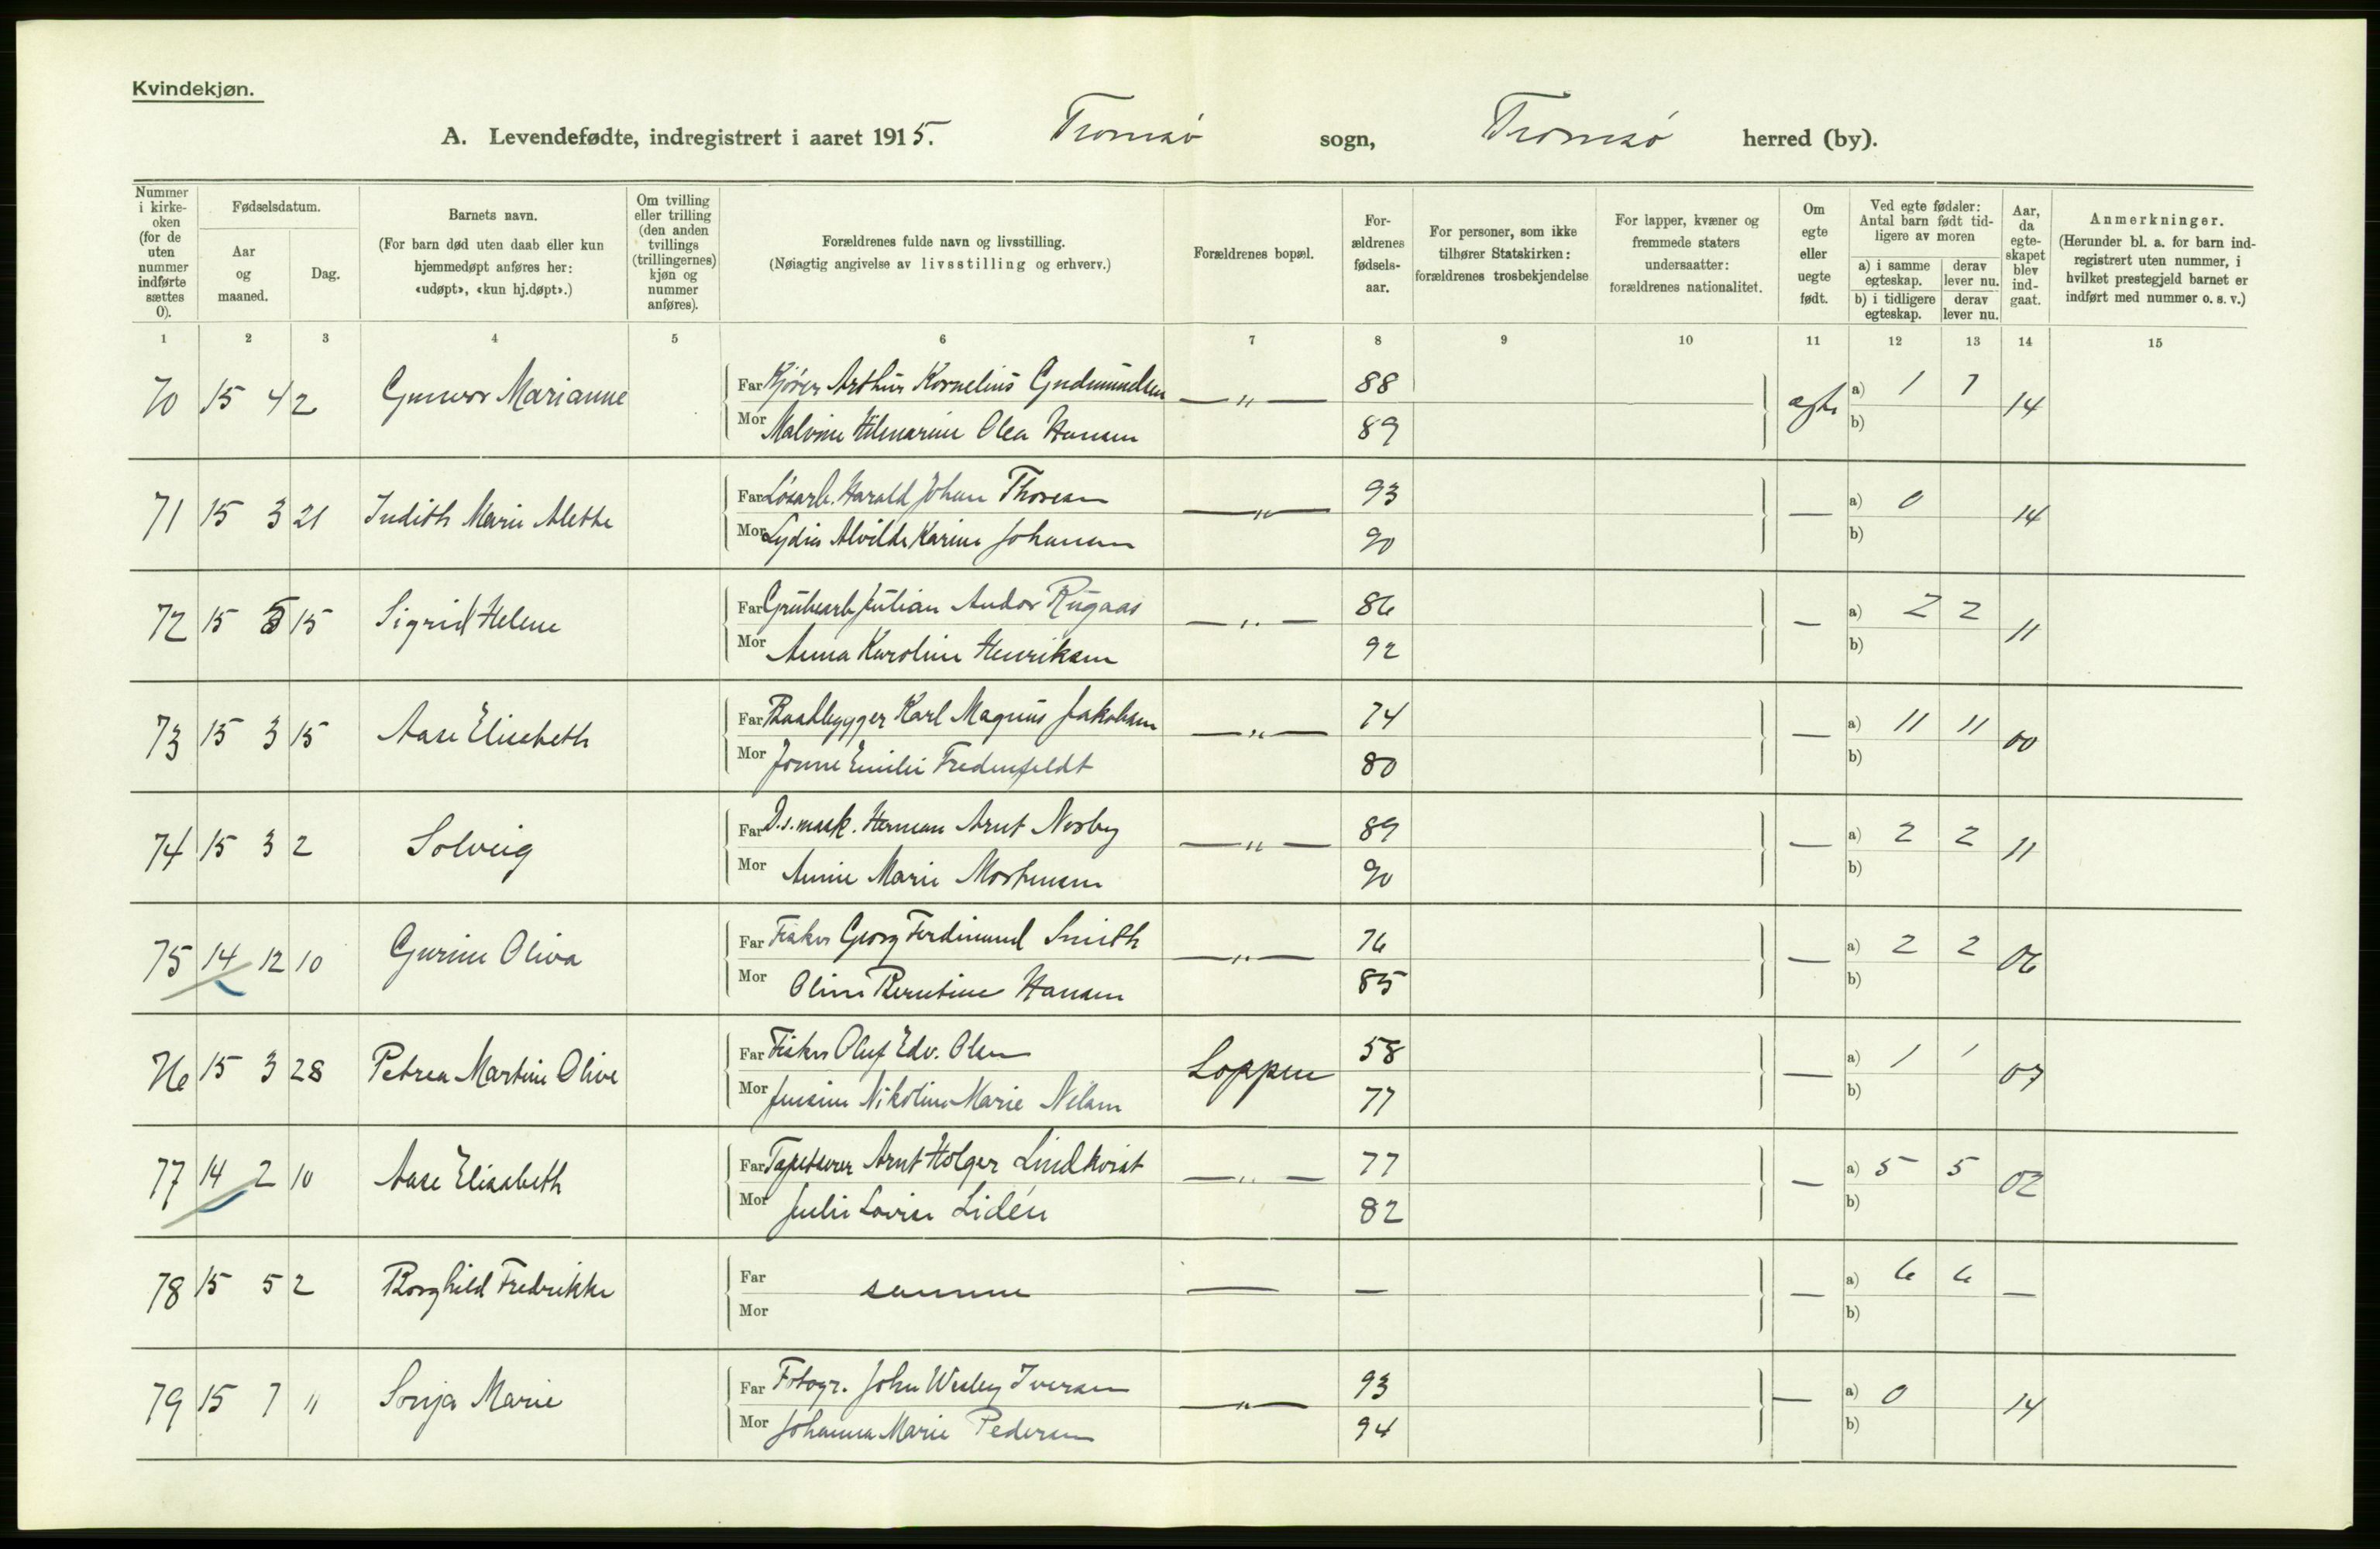 Kvindekjøn.
A. Levendefødte, indregistrert i aaret 1915. Tromsø sogn, Tromsø herred (by).
Nummer i kirkeoken (for de uten nummer indførte sættes 0).
Fødselsdatum.
Aar og maaned.
Dag.
Barnets navn.
(For barn død uten daab eller kun hjemmedøpt anføres her: «udøpt», «kun hj.døpt».)
Om tvilling eller trilling (den anden tvillings (trillingernes) kjøn og nummer anføres).
Forældrenes fulde navn og livsstilling.
(Nøiagtig angivelse av livsstilling og erhverv.)
Forældrenes bopæl.
For-ældrenes fødsels-aar.
For personer, som ikke tilhører Statskirken: forældrenes trosbekjendelse
For lapper, kvæner og fremmede staters undersaatter: forældrenes nationalitet.
Om egte eller uegte født.
Ved egte fødsler: Antal barn født tid-ligere av moren
a) i samme egteskap. derav lever nu.
b) i tidligere egteskap. derav lever nu.
Aar, da egte-skapet blev ind-gaat.
Anmerkninger.
(Herunder bl. a. for barn ind-registrert uten nummer, i hvilket prestegjeld barnet er indført med nummer o. s. v.)
1 2 3 4 5 6 7 8 9 10 11 12 13 14 15
70 15 4 2 Gunvor Marianne Far Kjører Arthur Kornelius Gudmundsen —„— 88 egte a) 1 1 14
Mor Malvine Hilmarine Olea Hansen 89 b)
71 15 3 21 Judith Marie Alette Far Løsarb. Harald Johan Thoresen —„— 93 — a) 0 14
Mor Lydia Alvilde Karine Johansen 90 b)
72 15 3 15 Sigrid Helene Far Grubearb. Julian Andor Rugaas —„— 86 — a) 2 2 11
Mor Anna Karoline Henriksen 92 b)
73 15 3 15 Aase Elisebeth Far Baadbygger Karl Magnus Jakobsen —„— 74 — a) 11 11 00
Mor Emilie Fredenfeldt 80 b)
74 15 3 2 Solveig Far D.s.mask. Herman Arnt Nesby —„— 89 — a) 2 2 11
Mor Annie Marie Mortensen 90 b)
75 14 12 10 Gurine Oliva Far Fisker Georg Ferdinand Smith —„— 76 — a) 2 2 06
Mor Oline Berntine Hansen 85 b)
76 15 3 28 Petrea Martine Olive Far Fisker Oluf Edv. Olsen Loppen 58 — a) 1 1 07
Mor Jensine Nikoline Marie Nilsen 77 b)
77 14 2 10 Aase Elisabeth Far Tapetserer Arnt Holger Lindkvist —„— 77 — a) 5 5 02
Mor Julie Lovise Lidén 82 b)
78 15 5 2 Borghild Fredrikke Far samme — — — a) 6 6 —
Mor b)
79 15 7 „ Sonja Marie Far Fotogr. John Wesley Iversen —„— 93 — a) 0 14
Mor Johanna Marie Pedersen 94 b)